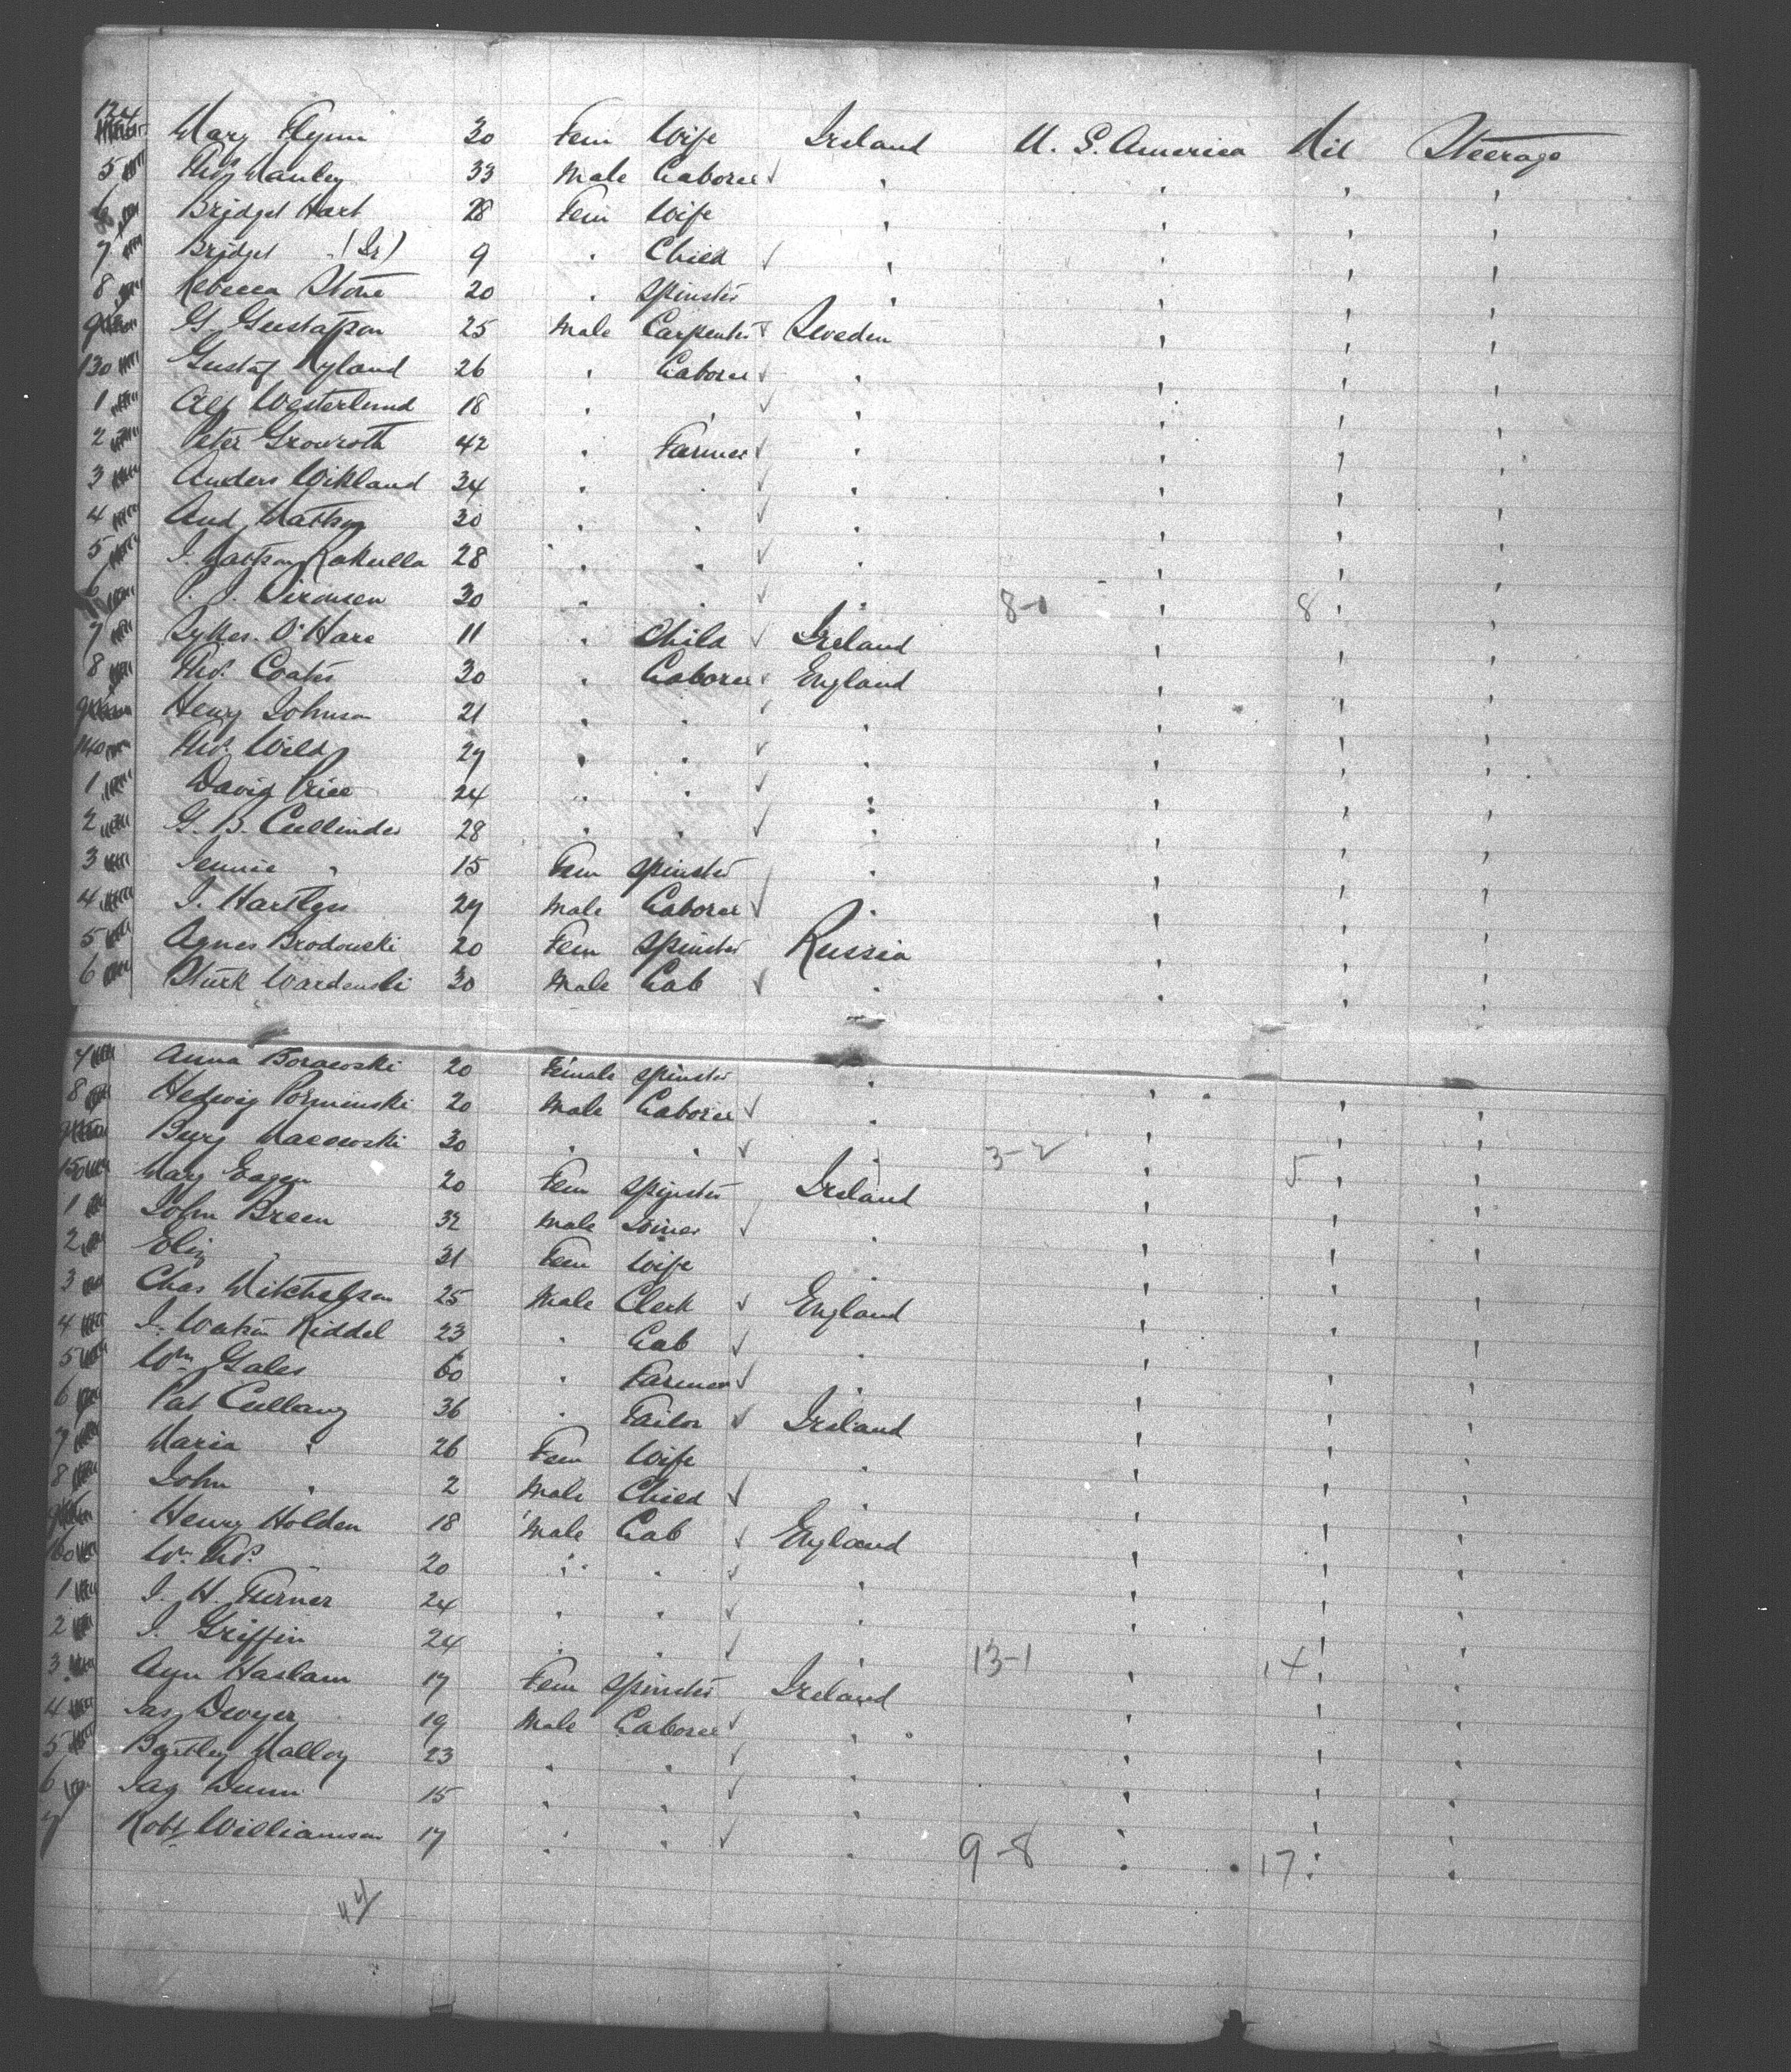 124 Mary Flynn 30 Fem Wife Ireland U. S. America Nil Steerage
5 Thos Manley 33 Male Laborer ✓ " " " "
6 Bridget Hart 28 Fem Wife " " " "
7 Bridget " (Jr) 9 " Child ✓ " " " "
8 Rebecca Stone 20 " Spinster " " " "
9 G. Gustafson 25 Male Carpenter ✓ Sweden " " "
130 Gustaf Nyland 26 " Laborer ✓ " " " "
1 Alf Westerlund 18 " " ✓ " " " "
2 Peter Growroth 42 " Farmer ✓ " " " "
3 Anders Wikland 34 " " ✓ " " " "
4 And Mattson 30 " " ✓ " " " "
5 J. Mattson Kakulla 28 " " ✓ " " " "
6 30 " " ✓ " 8-0 " 8 " "
7 O'Hare 11 " Child ✓ Ireland " " "
8 Thos. Coates 30 " Laborer ✓ England " " "
9 Henry Johnson 21 " " ✓ " " " "
140 Thos. Wild 27 " " ✓ " " " "
1 David Price 24 " " ✓ " " " "
2 G. B. Cullinder 28 " " ✓ " " " "
3 Jennie " 15 Fem Spinster " " " "
4 J. Hartley 29 Male Laborer ✓ " " " "
5 Agnes Brodowski 20 Fem Spinster Russia " " "
6 Wardenski 30 Male Lab ✓ " " " "
7 Anna Borawski 20 Female Spinster " " " "
8 Hedwig Porminski 20 Male Laborer ✓ " " " "
9 Macowski 30 " " ✓ " 3-2 " 5 " "
150 Mary Eagen 20 Fem Spinster Ireland " " "
1 John Breen 32 Male Joiner ✓ " " " "
2 Eliz " 31 Fem Wife " " " "
3 Chas Mitchelson 25 Male Clerk ✓ England " " "
4 J. Watson Riddel 23 " Lab ✓ " " " "
5 Wm Gales 60 " Farmer ✓ " " " "
6 Pat Cullany 36 " Tailor ✓ Ireland " " "
7 Maria " 26 Fem Wife " " " "
8 John " 2 Male Child ✓ " " " "
9 Henry Holden 18 Male Lab ✓ England " " "
160 Wm. Thos. " 20 " " ✓ " " " "
1 J. H. Turner 24 " " ✓ " " " "
2 J. Griffin 24 " " ✓ " 13-1 " 14 " "
3 Ann Haslam 17 Fem Spinster Ireland " " "
4 Jas Dwyer 19 Male Laborer ✓ " " " "
5 Bartley Malloy 23 " " ✓ " " " "
6 Jas Dunn 15 " " ✓ " " " "
7 Robt Williamson 17 " " ✓ " 9-8 " 17 " "
44